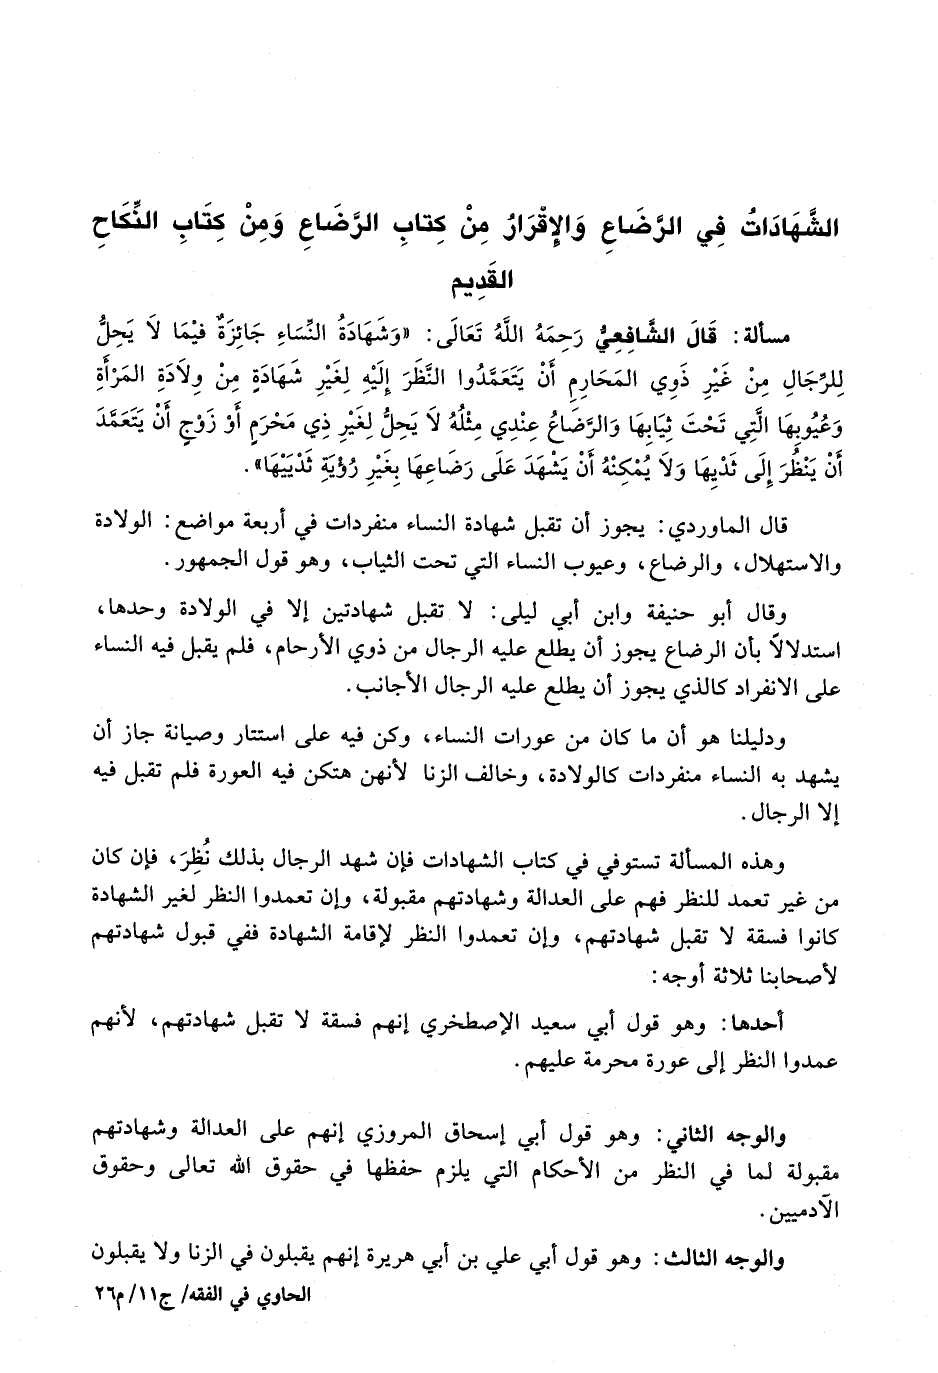 الشَّهَادَاتُ فِي الرَّضَاعِ وَالإِقْرَارُ مِنْ كِتابِ الرَّضَاعِ وَمِنْ كِتَابِ النِّكَاحِ
القَدِيمِ
مسألة: قَالَ الشَّافِعِيُّ رَحِمَهُ اللَّهُ تَعَالَى: «وَشَهَادَةُ النِّسَاءِ جَائِزَةٌ فِيْمَا لَا يَحِلُّ
لِلرِّجَالِ مِنْ غَيْرِ ذَوِي المَحَارِمِ أَنْ يَتَعَمَّدُوا النَّظَرَ إِلَيْهِ لِغَيْرِ شَهَادَةٍ مِنْ وِلَادَةِ المَرْأَةِ
وَعُيُوبِهَا الَّتِي تَحْتَ ثِيَابِهَا وَالرَّضَاعُ عِنْدِي مِثْلُهُ لَا يَحِلُّ لِغَيْرِ ذِي مَحْرَمٍ أَوْ زَوْجٍ أَنْ يَتَعَمَّدَ
أَنْ يَنْظُرَ إِلَى ثَدْيِهَا وَلَا يُمْكِنْهُ أَنْ يَشْهَدَ عَلَى رَضَاعِهَا بِغَيْرِ رُؤْيَةِ ثَدْيَيْهَا».
قال الماوردي: يجوز أن تقبل شهادة النساء منفردات في أربعة مواضع: الولادة
والاستهلال، والرضاع، وعيوب النساء التي تحت الثياب، وهو قول الجمهور.
وقال أبو حنيفة وابن أبي ليلى: لا تقبل شهادتين إلا في الولادة وحدها،
استدلالاً بأن الرضاع يجوز أن يطلع عليه الرجال من ذوي الأرحام، فلم يقبل فيه النساء
على الانفراد كالذي يجوز أن يطلع عليه الرجال الأجانب.
ودليلنا هو أن ما كان من عورات النساء، وكن فيه على استتار وصيانة جاز أن
يشهد به النساء منفردات كالولادة، وخالف الزنا لأنهن هتكن فيه العورة فلم تقبل فيه
إلا الرجال.
وهذه المسألة تستوفي في كتاب الشهادات فإن شهد الرجال بذلك نُظِرَ، فإن كان
من غير تعمد للنظر فهم على العدالة وشهادتهم مقبولة، وإن تعمدوا النظر لغير الشهادة
كانوا فسقة لا تقبل شهادتهم، وإن تعمدوا النظر لإقامة الشهادة ففي قبول شهادتهم
لأصحابنا ثلاثة أوجه:
أحدها: وهو قول أبي سعيد الإصطخري إنهم فسقة لا تقبل شهادتهم، لأنهم
عمدوا النظر إلى عورة محرمة عليهم.
والوجه الثاني: وهو قول أبي إسحاق المروزي إنهم على العدالة وشهادتهم
مقبولة لما في النظر من الأحكام التي يلزم حفظها في حقوق الله تعالى وحقوق
الآدميين.
والوجه الثالث: وهو قول أبي علي بن أبي هريرة إنهم يقبلون في الزنا ولا يقبلون
الحاوي في الفقه/ ج١١/ م٢٦